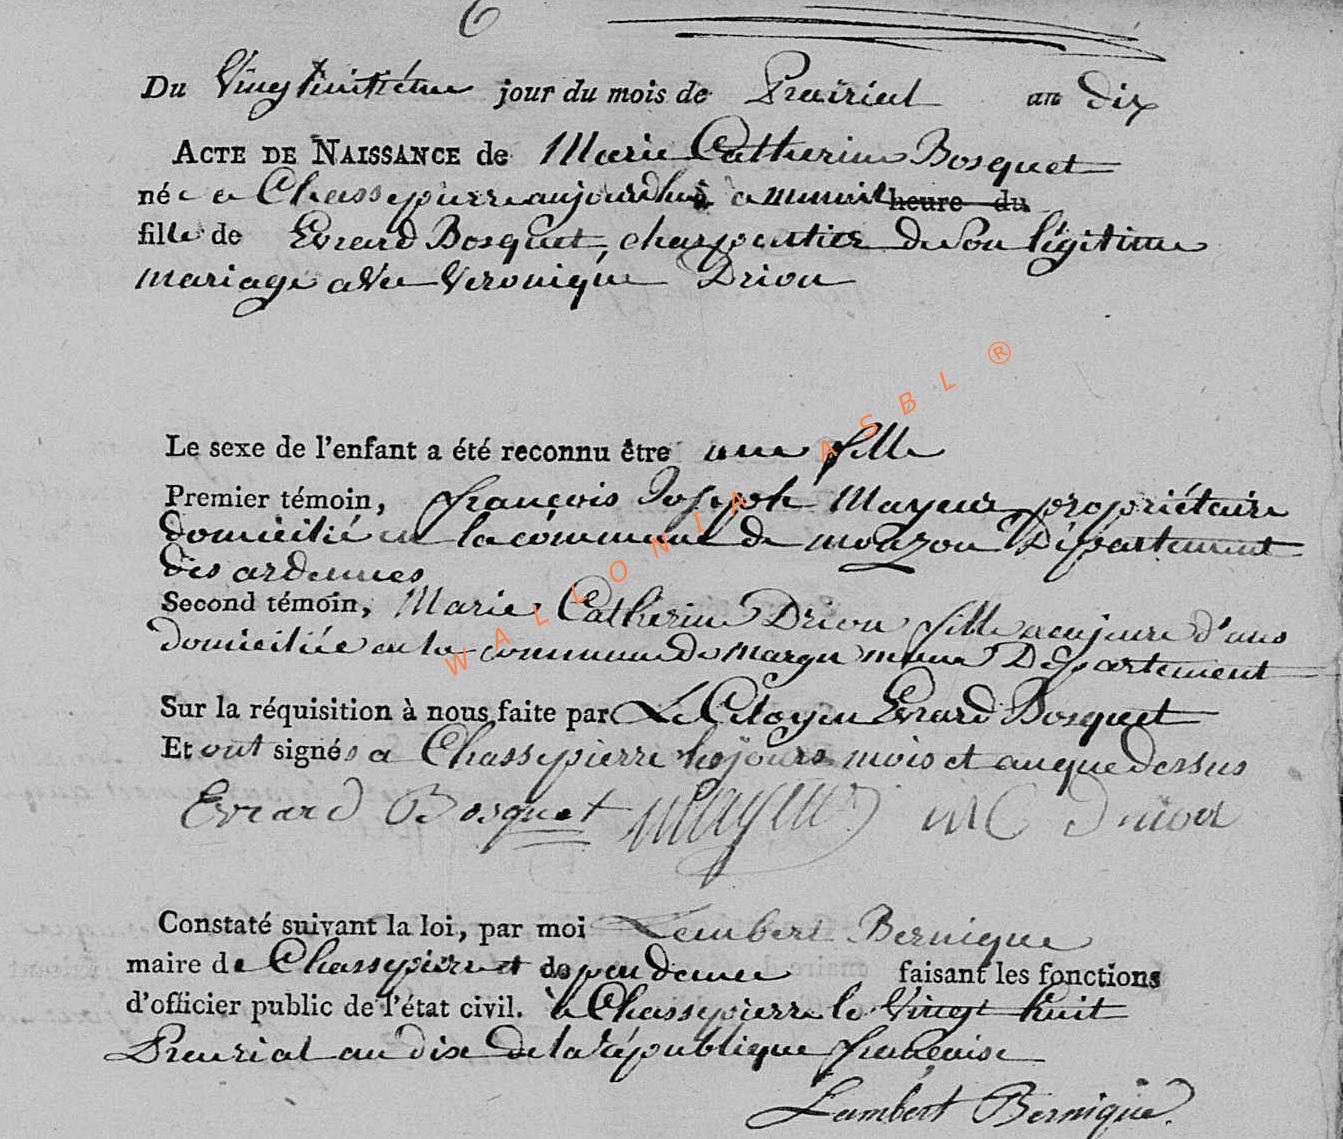 6
Du Vingt huitiéme jour du mois de Prairial an dix
ACTE DE NAISSANCE de Marie Catherine Bosquet
née a Chassepierre aujourdhui a minuit heure du
fille de Evrard Bosquet charpentier de Son légitime
mariage avec Veronique Drion
Le sexe de l'enfant a été reconnu être une fille
Premier témoin, françois Joseph Mayeur propriétaire
domicilié en la commune de mouzon Département
des ardennes
Second témoin, Marie Catherine Drion fille majeure d'ans
domiciliée en la commune de margu meme Département
Sur la réquisition à nous faite par Le Citoyen Evrard Bosquet
Et ont signés a Chassepierre les jours mois et an que dessus
Evrard Bosquet Mayeur MC Drion
Constaté suivant la loi, par moi Lambert Bernique
maire de Chassepierre et dependence faisant les fonctions
d'officier public de l'état civil. à Chassepierre le Vingt huit
Prairial an dix de la république francaise
Lambert Bernique
WALLONIA ASBL ®